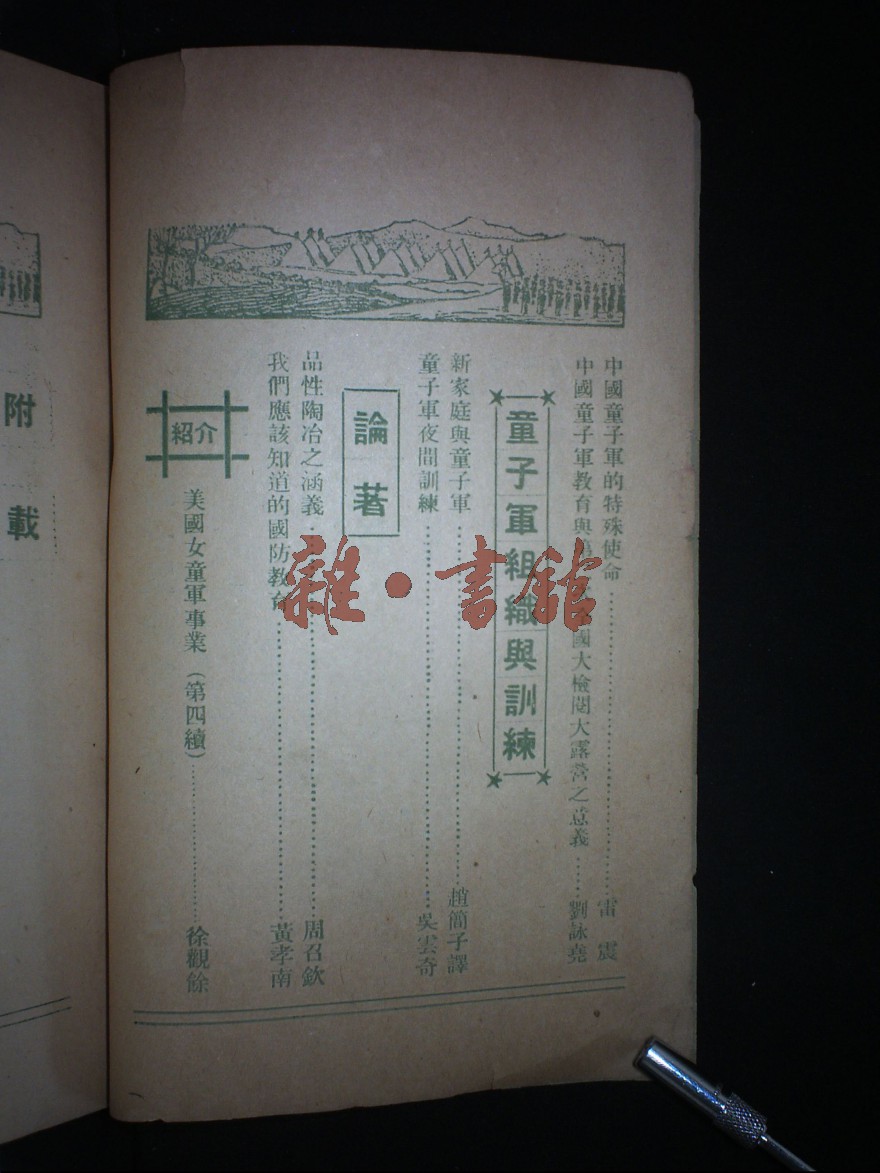 中國童子軍的特殊使命……雷 震
中國童子軍教育與 國大檢閱大露營之意義……劉詠堯
童子軍組織與訓練
新家庭與童子軍……趙簡子譯
童子軍夜間訓練……吳雲奇
論著
品性陶冶之涵義……周召欽
我們應該知道的國防教育……黃孝南
介紹
美國女童軍事業(第四續)……徐觀餘
附載
雜·書館